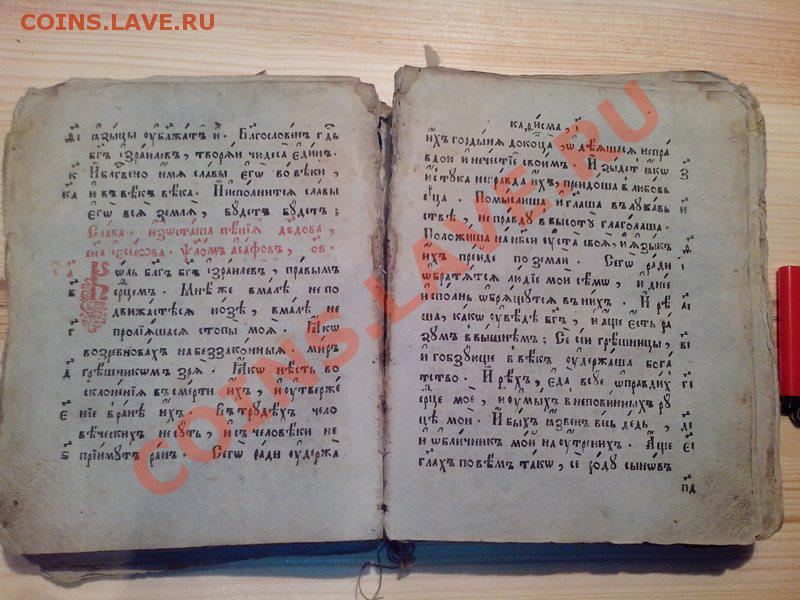 COINS.LAVE.RU
д҃і ꙗ҆зы́цы ᲂу҆блажа́тъ и҆̀. Блгⷭ҇ове́нъ гдⷭ҇ь
бг҃ъ і҆зра́илевъ, творѧ́й чюдеса̀ є҆ди́нъ.
к҃ И҆ блгⷭ҇ве́но и҆́мѧ сла́вы є҆гѡ̀ во вѣ́ки,
к҃а и҆ въ вѣ́къ вѣ́ка. И҆ и҆спо́лнитсѧ сла́вы
є҆гѡ̀ всѧ̀ землѧ̀, бꙋ́детъ бꙋ́детъ;
Сла́ва. и҆зѡста́ша пѣ́нїѧ дв҃дова,
сн҃а і҆ессе́ова. Ѱало́мъ а҆са́фовъ, о҃в.
а҃ Ко́ль бл҃гъ бг҃ъ і҆зра́илевъ, пра́вымъ
в҃ се́рцемъ. Мнѣ́ же вма́лѣ не по
дви́жастѣсѧ но́зѣ, вма́лѣ не
г҃ пролїѧ́шасѧ стопы̀ моѧ̀. Ꙗ҆́кѡ
возревнова́хъ на беззако́нныѧ. ми́ръ
д҃ грѣ́шникомъ зрѧ̀. Ꙗ҆́кѡ нѣ́сть во
склоне́нїѧ въ сме́рти и҆́хъ, и҆ ᲂу҆твержє
є҃ нїе в ра́нѣ и҆́хъ. Въ трꙋдѣ́хъ чело
вѣ́ческихъ не сꙋ́ть, и҆ съ человѣ́ки не
ѕ҃ прїи́мꙋтъ ра́нъ. Сегѡ̀ ра́ди ᲂу҆держа̀
каѳи́сма, і҃
и҆́хъ горды́нѧ до конца̀, ѡ҆дѣ́ѧшасѧ непра́
вдою и҆ нече́стїемъ свои́мъ. И҆зы́детъ ꙗ҆́кѡ
з҃ и҆с тꙋ́ка непра́вда и҆́хъ, преидо́ша в любо́вь
се́рца. Помы́слиша и҆ гл҃аша въ лꙋка́вь
и҃ ствѣ, непра́вдꙋ в высотꙋ̀ глаго́лаша.
Положи́ша на нб҃си ᲂу҆ста̀ своѧ̀, и҆ ѧ҆зы́къ
и҆́хъ пре́йде по землѝ. Сегѡ̀ ра́ди
і҃ ѡ҆братѧ́тсѧ лю́дїе мои̑ сѣ́мѡ, и҆ дні́е
и҆спо́лнь ѡ҆брѧ́щꙋтсѧ в ни́хъ. И҆ рѣ́
а҃і ша, ка́кѡ ᲂу҆вѣ́дѣ бг҃ъ, и҆ а҆́ще є҆́сть ра́
зꙋмъ в вы́шнемъ; Се сі́и грѣ́шницы,
в҃і и҆ гобзꙋ́юще в вѣ́къ ᲂу҆держа́ша бога́
тство. И҆ рѣ́хъ, є҆да̀ всꙋ́е ѡ҆правди́хъ
г҃і се́рце моѐ, и҆ ᲂу҆мы́хъ в непови́нныхъ рꙋ́
цѣ мои̑. И҆ бы́хъ ꙗ҆́звенъ ве́сь де́нь,
д҃і и҆ ѡ҆бличе́никъ мо́й на ᲂу҆́тренихъ. А҆́ще
є҃і гл҃ахъ повѣ́мъ та́кѡ, се ро́дꙋ сынѡ́въ
п҃д
COINS.LAVE.RU